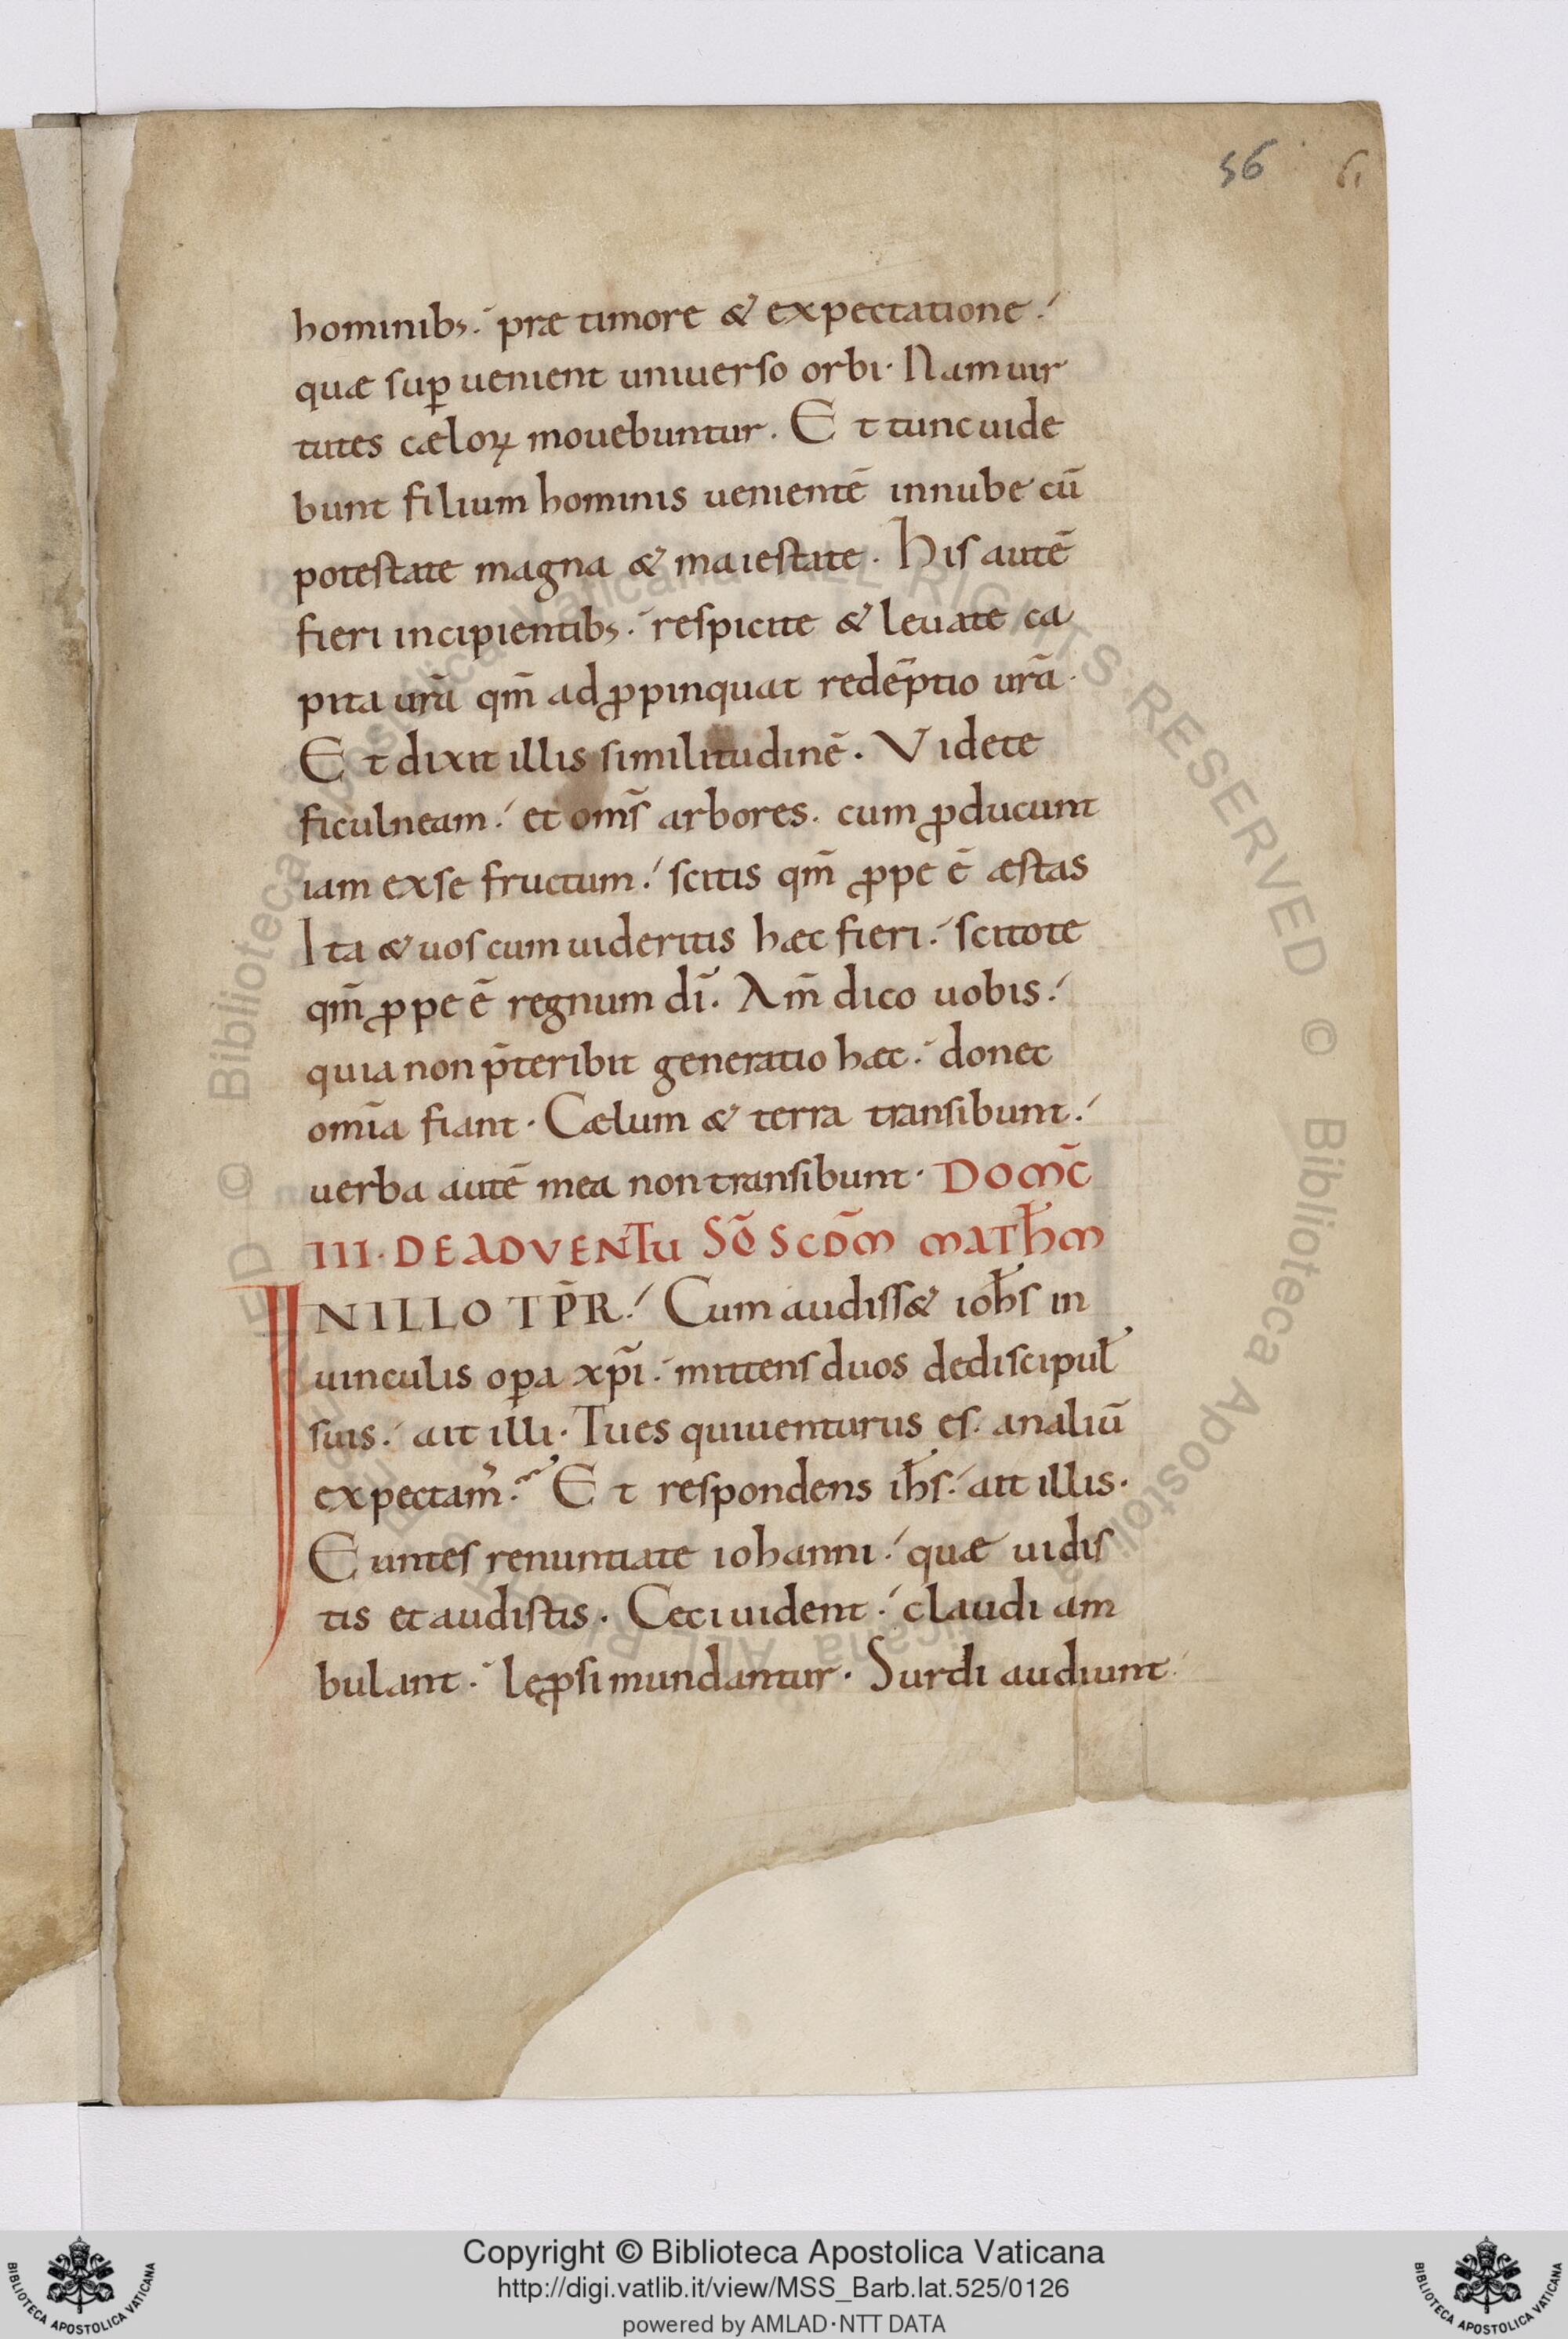 56 61
hominibꝫ. præ timore & expectatione.
quæ suꝑ uenient uniuerso orbi. Nam uir
tutes cælorꝝ mouebuntur. E t tunc uide
bunt filium hominis uenientē innube cū
potestate magna & maiestate. His autē
fieri incipientibꝫ. respicite & leuate ca
pita ur̄a qm̄ adꝓpinquat redēptio ur̄a.
E t dixit illis similitudinē. Videte
ficulneam. et om̄s arbores. cum ꝓducunt
iam exse fructum. scitis qm̄ ꝓpe ē æstas
Ita & uos cum uideritis hæc fieri. scitote
qm̄ ꝓpe ē regnum dī. Am̄ dico uobis.
quia non p̄teribit generatio hæc. donec
om̄ia fiant. Cælum & terra transibunt.
uerba autē mea non transibunt. DOMC̄
III. DE ADVENTU SC̄ SCDM̄ MATHM
INILLO TP̄R. Cum audiss& ioh̄s in
uinculis oꝑa xp̄i. mittens duos dediscipul̄
suis. ait illi. Tues quiuenturus es. analiū
expectam᾽. E t respondens ih̄s. ait illis.
E untes renuntiate iohanni. quæ uidis
tis et audistis. Ceci uident. claudi am
bulant. leꝓsi mundantur. Surdi audiunt.
Copyright © Biblioteca Apostolica Vaticana
http://digi.vatlib.it/view/MSS_Barb.lat.525/0126
powered by AMLAD·NTT DATA